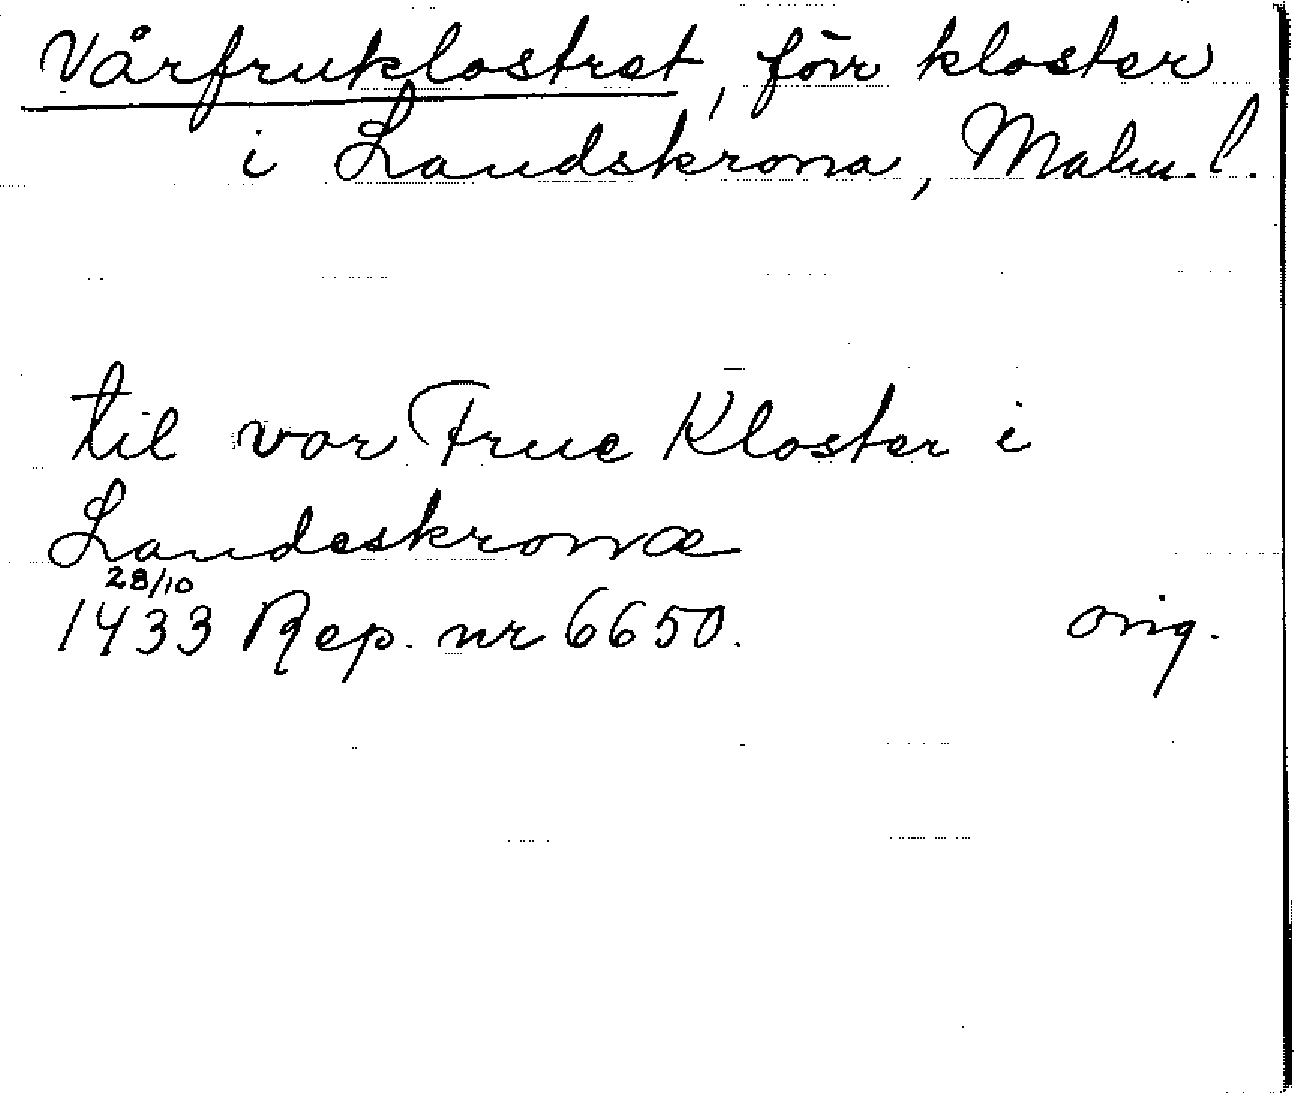 Vårfruklostret, förr kloster
i Landskrona, Malm. l.
til vor Frue Kloster i
Landeskronæ
28/10
1433 Rep. nr 6650. orig.